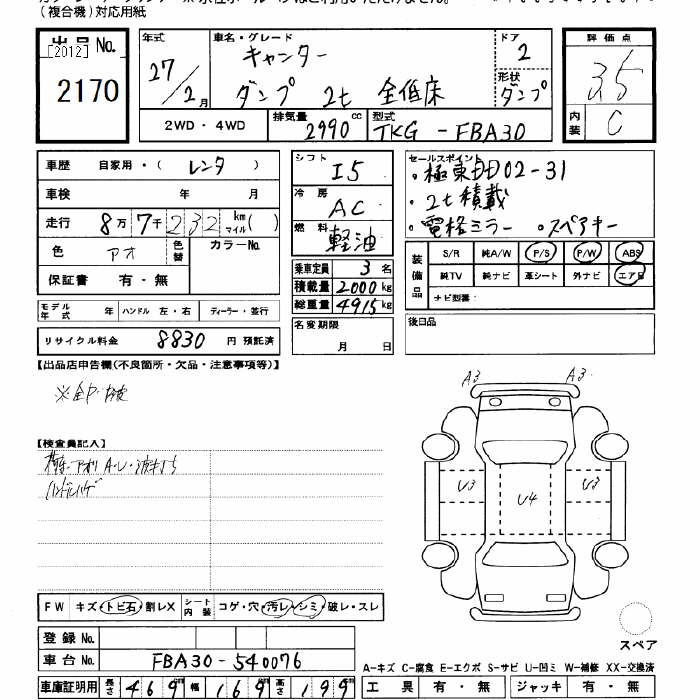 (複合機)対応用紙
出品 No.
[2012]
2170
年式
27/2月
車名・グレード
キャンター
ダンプ 2t 全低床
ドア
2
形状
ダンプ
評価点
3.5
内装
C
2WD・4WD
排気量 2990 cc
型式 TKG-FBA30
車歴 自家用・( レンタ )
車検 年 月
走行 8万7千232 km マイル( )
色 アオ 色替 カラーNo.
保証書 有・無
モデル年式 年 ハンドル 左・右 ディーラー・並行
リサイクル料金 8830 円 預託済
シフト I5
冷房 AC
燃料 軽油
乗車定員 3 名
積載量 2000 kg
総重量 4915 kg
名変期限
月 日
セールスポイント
・極東DD02-31
・2t積載
・電格ミラー ・スペアキー
装備品
S/R 純A/W P/S P/W ABS
純TV 純ナビ 革シート 外ナビ エアB
ナビ型番:
後日品
【出品店申告欄(不良箇所・欠品・注意事項等)】
【検査員記入】
A3 A3
U3 U4 U3
FW キズ・トビ石・割レX シート内装 コゲ・穴・汚レ・シミ・破レ・スレ
登録 No.
車台 No. FBA30-540076
車庫証明用 長さ 469 幅 169 高さ 199
スペア
A-キズ C-腐食 E-エクボ S-サビ U-凹ミ W-補修 XX-交換済
工具 有・無 ジャッキ 有・無